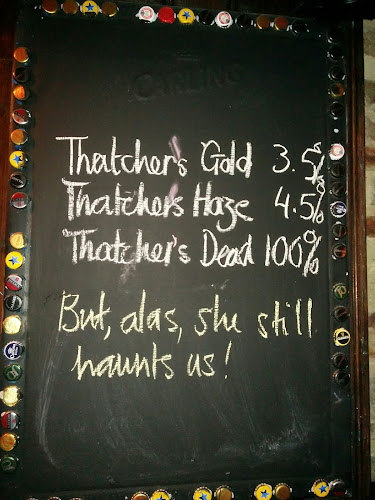 CARLING
Thatcher's Gold 3.5%
Thatcher's Haze 4.5%
Thatcher's Dead 100%
But, alas, she still
haunts us!